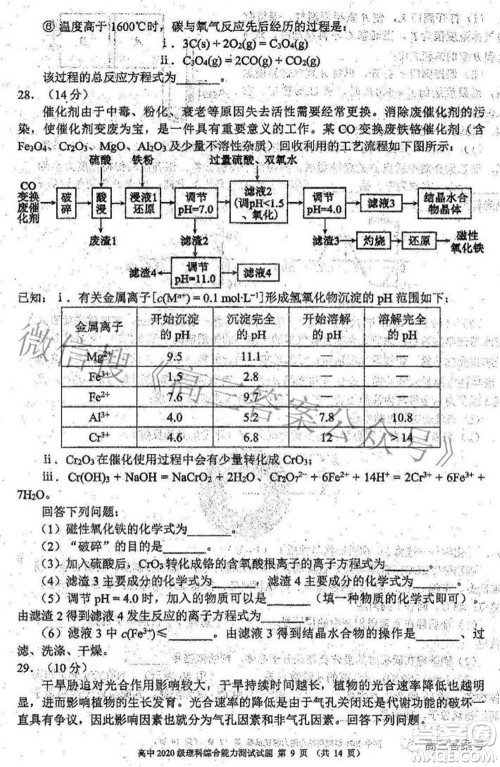 ⑥ 温度高于1600℃时，碳与氧气反应先后经历的过程是：
ⅰ．3C(s) + 2O₂(g) = C₃O₄(g)
ⅱ．C₃O₄(g) = 2CO(g) + CO₂(g)
该过程的总反应方程式为______。
28.（14分）
催化剂由于中毒、粉化、衰老等原因失去活性，需要经常更换。消除废催化剂的污
染，使废催化剂变废为宝，是一件具有重要意义的工作。某CO变换废铁铬催化剂（含
Fe₃O₄、Cr₂O₃、MgO、Al₂O₃及少量不溶性杂质）回收利用的工艺流程如下图所示：
硫酸 铁粉 过量硫酸、双氧水
CO变换废催化剂 破碎 酸浸 浸液1还原 调节pH=7.0 滤液2（调pH<1.5、氧化） 调节pH=4.0 滤液3 结晶水合物晶体
废渣1 滤渣2 滤渣3 灼烧 还原 磁性氧化铁
滤渣4 调节pH=11.0 滤液4
已知：ⅰ．有关金属离子[c(Mⁿ⁺) = 0.1 mol·L⁻¹]形成氢氧化物沉淀的pH范围如下：
金属离子 开始沉淀的pH 沉淀完全的pH 开始溶解的pH 溶解完全的pH
Mg²⁺ 9.5 11.1 — —
Fe³⁺ 1.5 2.8 — —
Fe²⁺ 7.6 9.7 — —
Al³⁺ 4.0 5.2 7.8 10.8
Cr³⁺ 4.6 6.8 12 >14
ⅱ．Cr₂O₃在催化使用过程中会有少量转化成CrO₃；
ⅲ．Cr(OH)₃ + NaOH = NaCrO₂ + 2H₂O、Cr₂O₇²⁻ + 6Fe²⁺ + 14H⁺ = 2Cr³⁺ + 6Fe³⁺ +
7H₂O。
回答下列问题：
（1）磁性氧化铁的化学式为______。
（2）“破碎”的目的是______。
（3）加入硫酸后，CrO₃转化成铬的含氧酸根离子的离子方程式为______。
（4）滤渣3主要成分的化学式为______，滤渣4主要成分的化学式为______。
（5）调节pH = 4.0时，加入的物质可以是______（填一种物质的化学式即可）
由滤渣2得到滤液4发生反应的离子方程式为______。
（6）滤液3中c(Fe³⁺)≤______。由滤液3得到结晶水合物的操作是______、过
滤、洗涤、干燥。
29.（10分）
干旱胁迫对光合作用影响较大，干旱持续时间越长，植物的光合速率降低越明显，
植物的生长发育。光合速率的降低是由于气孔关闭还是由于代谢功能的破坏一
直具有争议，因此影响光合速率的因素可分为气孔因素和非气孔因素。回答下列问题。
高中2020级理科综合能力测试试题 第9页（共14页）
微信搜《高三答案公众号》
高三答案号